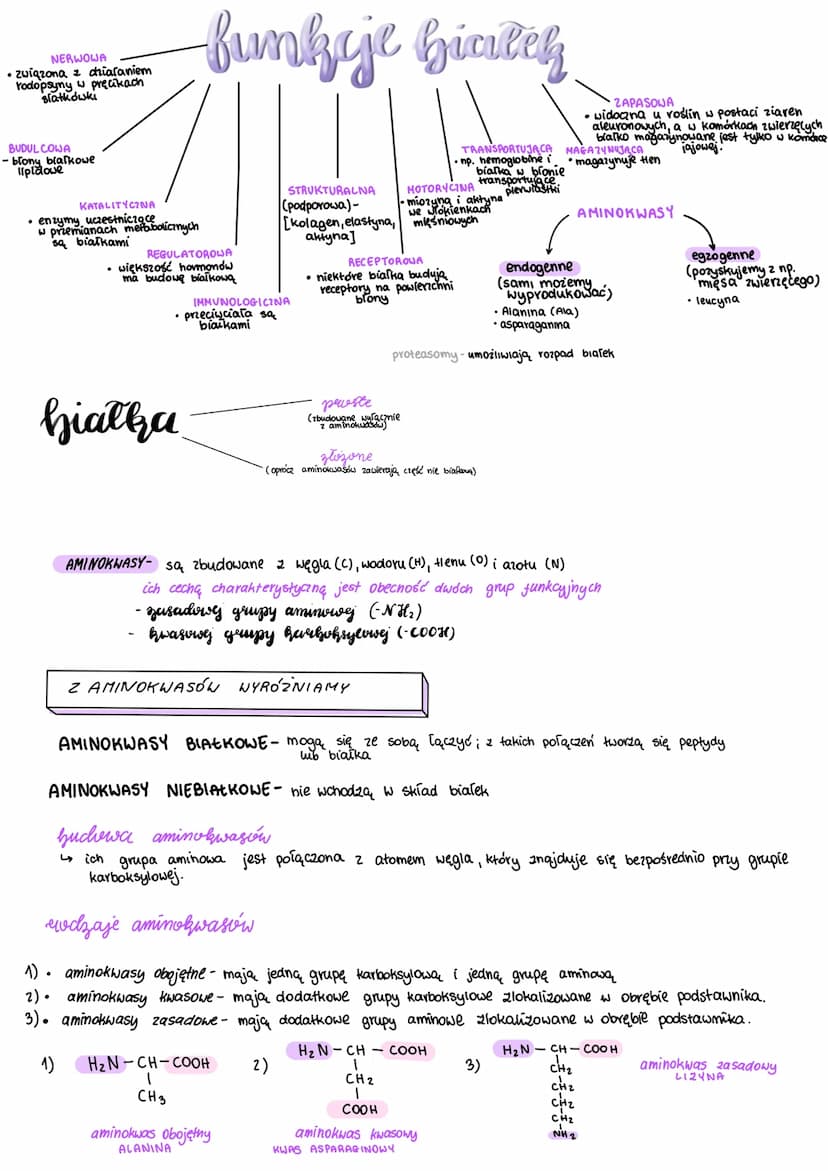 funkcje białek
NERWOWA
• związana z działaniem
rodopsyny w pręcikach
siatkówki
BUDULCOWA
- błony białkowe
lipidowe
KATALITYCZNA
• enzymy uczestniczące
w przemianach metabolicznych
są białkami
REGULATOROWA
• większość hormonów
ma budowę białkową
IMMUNOLOGICZNA
• przeciwciała są
białkami
STRUKTURALNA
(podporowa) -
[kolagen, elastyna,
aktyna]
RECEPTOROWA
• niektóre białka budują
receptory na powierzchni
błony
MOTORYCZNA
• miozyna i aktyna
we włókienkach
mięśniowych
TRANSPORTUJĄCA
• np. hemoglobine i
białka w błonie
transportujące
pierwiastki
MAGAZYNUJĄCA
• magazynuje tlen
ZAPASOWA
• widoczna u roślin w postaci ziaren
aleuronowych, a w komórkach zwierzęcych
białko magazynowane jest tylko w komórce
jajowej.
AMINOKWASY
endogenne
(sami możemy
wyprodukować)
• Alanina (Ala)
• asparaganina
egzogenne
(pozyskujemy z np.
mięsa zwierzęcego)
• leucyna
proteasomy - umożliwiają rozpad białek
białka
proste
(zbudowane wyłącznie
z aminokwasów)
złożone
(oprócz aminokwasów zawierają część nie białkową)
AMINOKWASY- są zbudowane z węgla (C), wodoru (H), tlenu (O) i azotu (N)
ich cechą charakterystyczną jest obecność dwóch grup funkcyjnych
- zasadowej grupy aminowej (-NH₂)
- kwasowej grupy karboksylowej (-COOH)
Z AMINOKWASÓW WYRÓŻNIAMY
AMINOKWASY BIAŁKOWE - mogą się ze sobą łączyć; z takich połączeń tworzą się peptydy
lub białka
AMINOKWASY NIEBIAŁKOWE - nie wchodzą w skład białek
budowa aminokwasów
↳ ich grupa aminowa jest połączona z atomem węgla, który znajduje się bezpośrednio przy grupie
karboksylowej.
rodzaje aminokwasów
1) • aminokwasy obojętne - mają jedną grupę karboksylową i jedną grupę aminową
2) • aminokwasy kwasowe - mają dodatkowe grupy karboksylowe zlokalizowane w obrębie podstawnika.
3) • aminokwasy zasadowe - mają dodatkowe grupy aminowe zlokalizowane w obrębie podstawnika.
1) H₂N - CH - COOH
CH₃
aminokwas obojętny
ALANINA
2) H₂N - CH - COOH
CH₂
COOH
aminokwas kwasowy
KWAS ASPARAGINOWY
3) H₂N - CH - COOH
CH₂
CH₂
CH₂
CH₂
NH₂
aminokwas zasadowy
LIZYNA